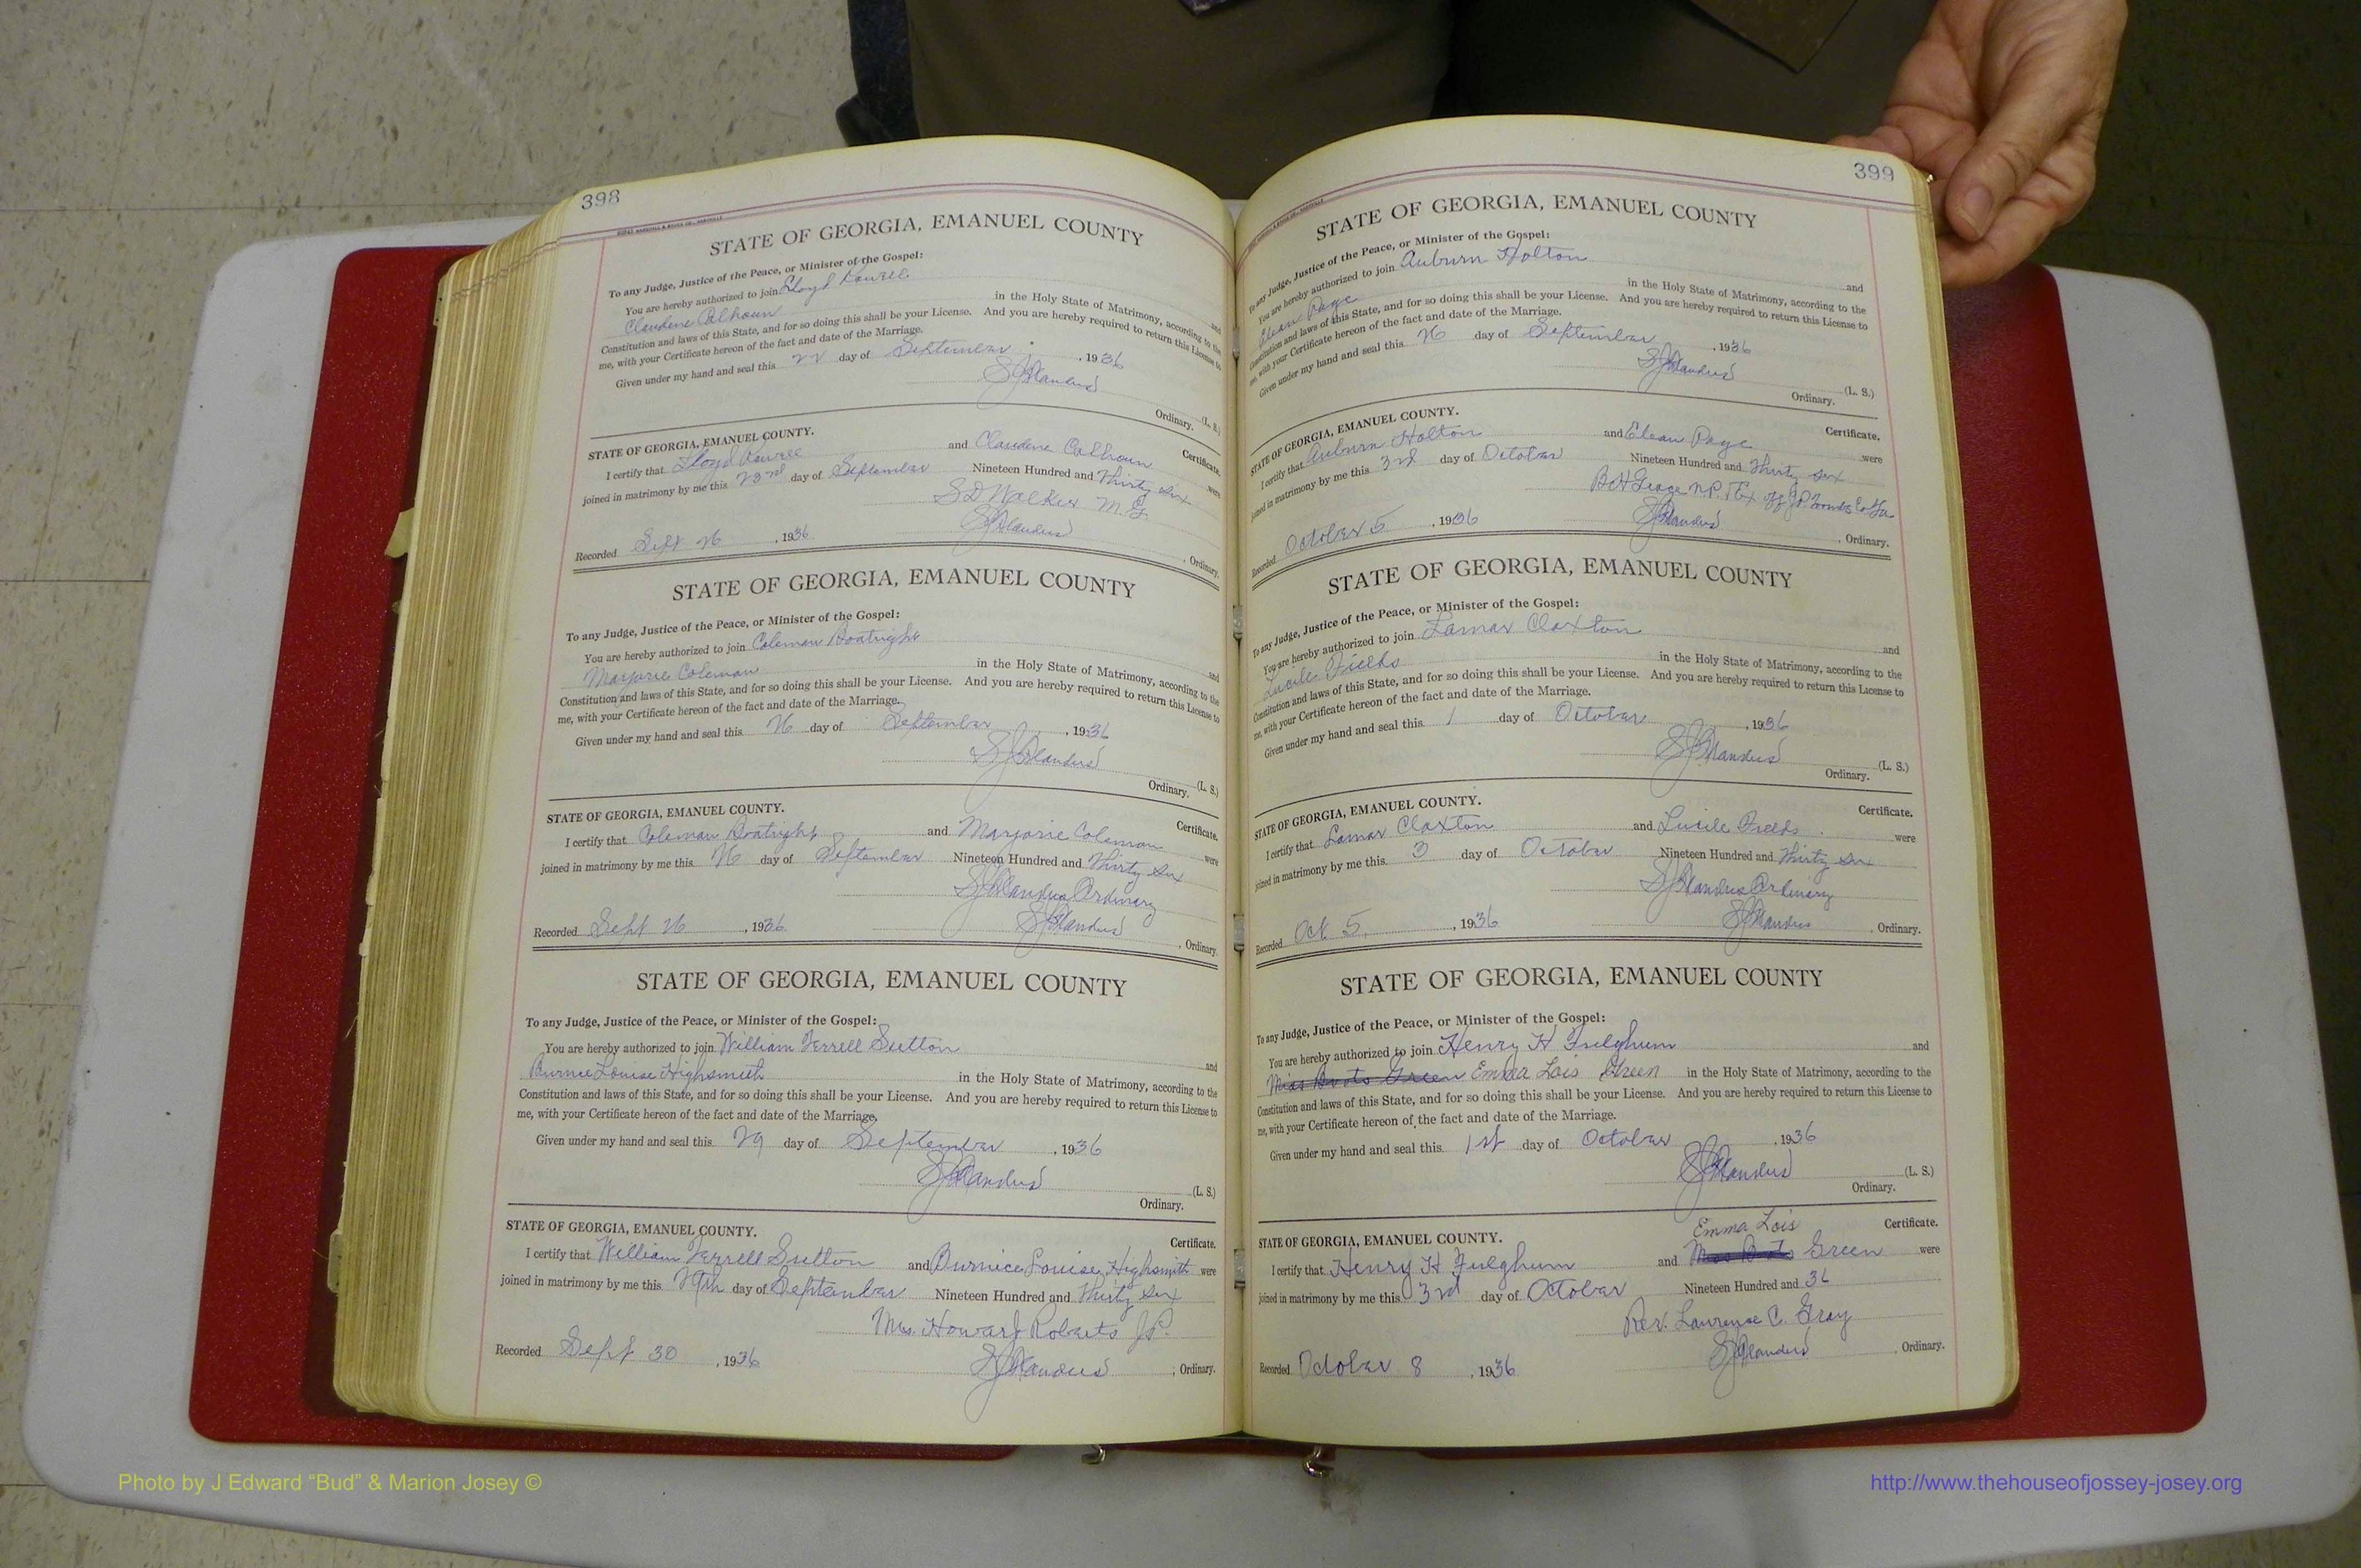 398
STATE OF GEORGIA, EMANUEL COUNTY
To any Judge, Justice of the Peace, or Minister of the Gospel:
You are hereby authorized to join Lloyd and
Claudene Calhoun in the Holy State of Matrimony, according to the
Constitution and laws of this State, and for so doing this shall be your License. And you are hereby required to return this License to
me, with your Certificate hereon of the fact and date of the Marriage.
Given under my hand and seal this 22 day of September, 1936
(L. S.)
Ordinary.
STATE OF GEORGIA, EMANUEL COUNTY.
Certificate.
I certify that Lloyd and Claudene Calhoun were
joined in matrimony by me this 23rd day of September Nineteen Hundred and Thirty Six
S D Walker M. G.
Recorded Sept 26, 1936 , Ordinary.
STATE OF GEORGIA, EMANUEL COUNTY
To any Judge, Justice of the Peace, or Minister of the Gospel:
You are hereby authorized to join Coleman Boatright and
Marjorie Coleman in the Holy State of Matrimony, according to the
Constitution and laws of this State, and for so doing this shall be your License. And you are hereby required to return this License to
me, with your Certificate hereon of the fact and date of the Marriage.
Given under my hand and seal this 26 day of September, 1936
(L. S.)
Ordinary.
STATE OF GEORGIA, EMANUEL COUNTY.
Certificate.
I certify that Coleman Boatright and Marjorie Coleman were
joined in matrimony by me this 26 day of September Nineteen Hundred and Thirty Six
Ordinary
Recorded Sept 26, 1936 , Ordinary.
STATE OF GEORGIA, EMANUEL COUNTY
To any Judge, Justice of the Peace, or Minister of the Gospel:
You are hereby authorized to join William Terrell Sutton and
Burnice Louise Highsmith in the Holy State of Matrimony, according to the
Constitution and laws of this State, and for so doing this shall be your License. And you are hereby required to return this License to
me, with your Certificate hereon of the fact and date of the Marriage.
Given under my hand and seal this 29 day of September, 1936
(L. S.)
Ordinary.
STATE OF GEORGIA, EMANUEL COUNTY.
Certificate.
I certify that William Terrell Sutton and Burnice Louise Highsmith were
joined in matrimony by me this 29th day of September Nineteen Hundred and Thirty Six
Mrs. Howard Roberts J.P.
Recorded Sept 30, 1936 , Ordinary.
399
STATE OF GEORGIA, EMANUEL COUNTY
To any Judge, Justice of the Peace, or Minister of the Gospel:
You are hereby authorized to join Auburn Holton and
Elean Page in the Holy State of Matrimony, according to the
Constitution and laws of this State, and for so doing this shall be your License. And you are hereby required to return this License to
me, with your Certificate hereon of the fact and date of the Marriage.
Given under my hand and seal this 26 day of September, 1936
(L. S.)
Ordinary.
STATE OF GEORGIA, EMANUEL COUNTY.
Certificate.
I certify that Auburn Holton and Elean Page were
joined in matrimony by me this 3rd day of October Nineteen Hundred and Thirty Six
N.P. & Ex off J.P. Toombs Co Ga
Recorded October 5, 1936 , Ordinary.
STATE OF GEORGIA, EMANUEL COUNTY
To any Judge, Justice of the Peace, or Minister of the Gospel:
You are hereby authorized to join Lamar Claxton and
Lucile Fields in the Holy State of Matrimony, according to the
Constitution and laws of this State, and for so doing this shall be your License. And you are hereby required to return this License to
me, with your Certificate hereon of the fact and date of the Marriage.
Given under my hand and seal this 1 day of October, 1936
(L. S.)
Ordinary.
STATE OF GEORGIA, EMANUEL COUNTY.
Certificate.
I certify that Lamar Claxton and Lucile Fields were
joined in matrimony by me this 3 day of October Nineteen Hundred and Thirty Six
Ordinary
Recorded Oct 5, 1936 , Ordinary.
STATE OF GEORGIA, EMANUEL COUNTY
To any Judge, Justice of the Peace, or Minister of the Gospel:
You are hereby authorized to join Henry H Fulghum and
Miss Boots Green Emma Lois Green in the Holy State of Matrimony, according to the
Constitution and laws of this State, and for so doing this shall be your License. And you are hereby required to return this License to
me, with your Certificate hereon of the fact and date of the Marriage.
Given under my hand and seal this 1st day of October, 1936
(L. S.)
Ordinary.
STATE OF GEORGIA, EMANUEL COUNTY.
Emma Lois
Certificate.
I certify that Henry H Fulghum and Miss Boots Green were
joined in matrimony by me this 3rd day of October Nineteen Hundred and 36
Rev. Lawrence C. Gray
Recorded October 8, 1936 , Ordinary.
Photo by J Edward “Bud” & Marion Josey ©
http://www.thehouseofjossey-josey.org